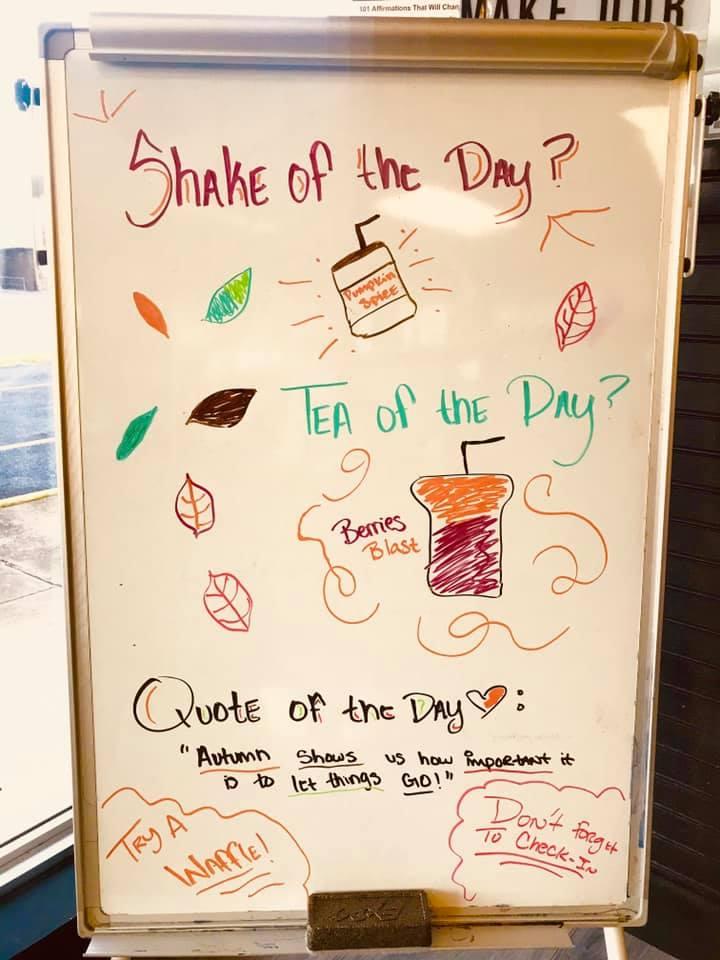 101 Affirmations That Will
MAKE OUR
Shake of the Day?
Pumpkin
Spice
Tea of the Day?
Berries
Blast
Quote of the Day:
"Autumn Shows us how important it
is to let things GO!"
Try A
Waffle!
Don't forget
To Check-In